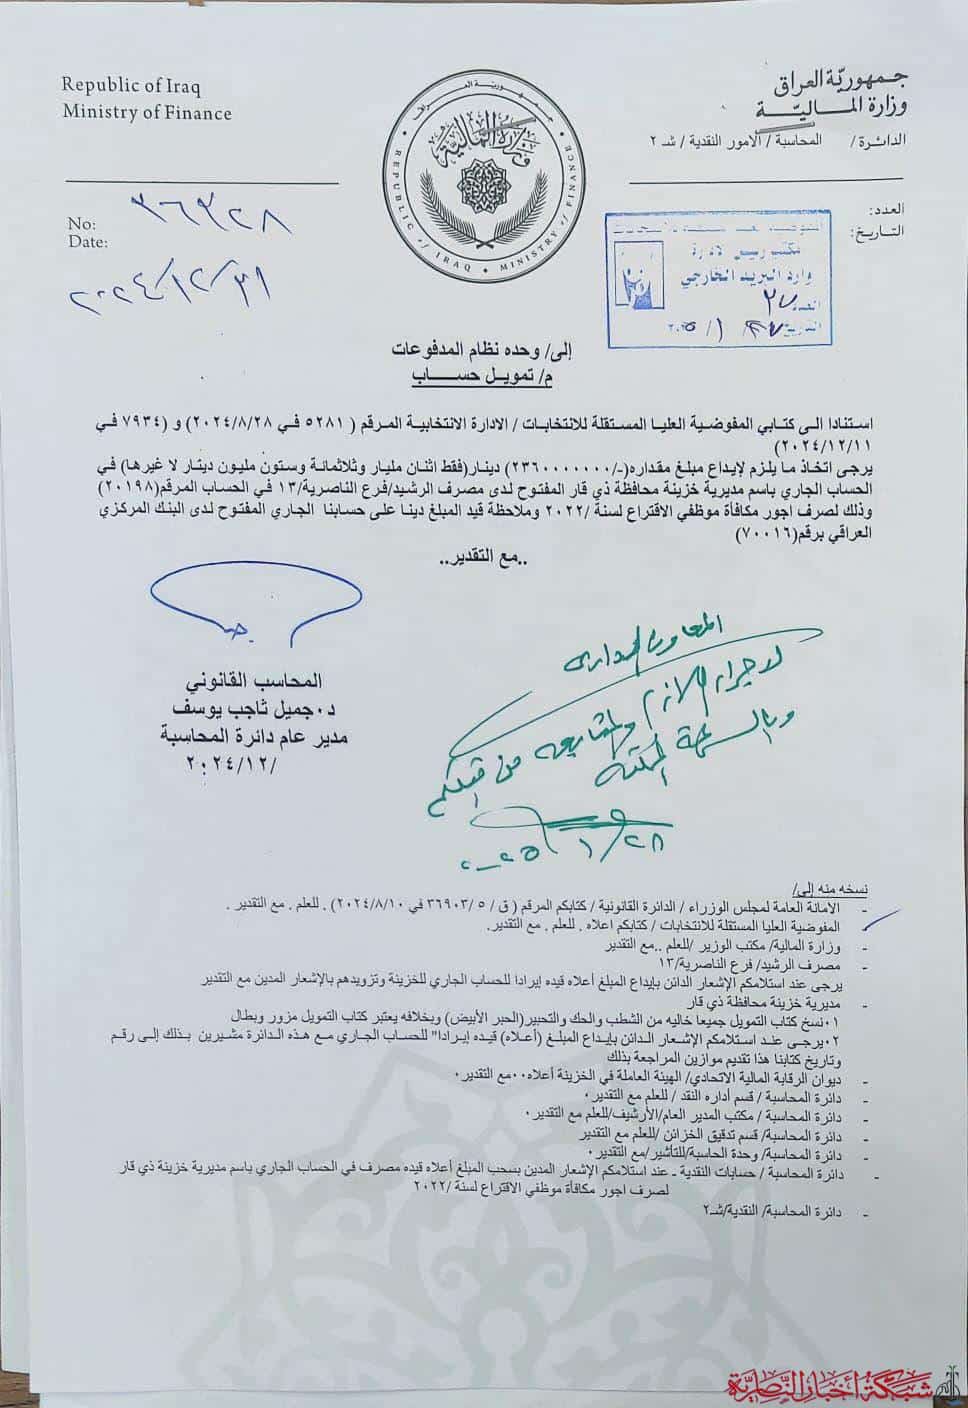 Republic of Iraq
Ministry of Finance
جمهوريّة العراق
وزارة الماليّة
الدائرة/ المحاسبة / الامور النقدية / شـ ٢
جمهورية العراق
وزارة المالية
REPUBLIC OF IRAQ MINISTRY OF FINANCE
No: ٣٦٣٢٨
Date: ٢٠٢٤/١٢/٣١
العدد:
التاريخ:
مكتب رئيس الادارة
وارد البريد الخارجي
العدد
التاريخ
إلى/ وحده نظام المدفوعات
م/ تمويل حساب
استنادا الى كتابي المفوضية العليا المستقلة للانتخابات / الادارة الانتخابية المرقم ( ٥٢٨١ في ٢٠٢٤/٨/٢٨) و (٧٩٣٤ في
٢٠٢٤/١٢/١١)
يرجى اتخاذ ما يلزم لإيداع مبلغ مقداره(-/٢٣٦٠٠٠٠٠٠٠) دينار(فقط اثنان مليار وثلاثمائة وستون مليون دينار لا غيرها) في
الحساب الجاري باسم مديرية خزينة محافظة ذي قار المفتوح لدى مصرف الرشيد/فرع الناصرية/١٣ في الحساب المرقم(٢٠١٩٨)
وذلك لصرف اجور مكافأة موظفي الاقتراع لسنة /٢٠٢٢ وملاحظة قيد المبلغ دينا على حسابنا الجاري المفتوح لدى البنك المركزي
العراقي برقم(٧٠٠١٦)
..مع التقدير..
المحاسب القانوني
د.جميل ثاجب يوسف
مدير عام دائرة المحاسبة
/٢٠٢٤/١٢
المعاون الاداري
لاجراء اللازم والمتابعة من قبلكم
وبالسرعة الممكنة
٢٠٢٥/١/٢٨
نسخه منه إلى/
- الامانة العامة لمجلس الوزراء / الدائرة القانونية / كتابكم المرقم ( ق / ٥ /٣٦٩٠٣ في ٢٠٢٤/٨/١٠) . للعلم . مع التقدير .
- المفوضية العليا المستقلة للانتخابات / كتابكم اعلاه . للعلم . مع التقدير.
- وزارة المالية/ مكتب الوزير /للعلم ..مع التقدير
- مصرف الرشيد/ فرع الناصرية/١٣
يرجى عند استلامكم الإشعار الدائن بإيداع المبلغ أعلاه قيده إيرادا للحساب الجاري للخزينة وتزويدهم بالإشعار المدين مع التقدير
- مديرية خزينة محافظة ذي قار
٠١نسخ كتاب التمويل جميعا خاليه من الشطب والحك والتحبير(الحبر الأبيض) وبخلافه يعتبر كتاب التمويل مزور وبطال
٠٢يرجى عند استلامكم الإشعار الدائن بإيداع المبلغ (أعلاه) قيده إيرادا" للحساب الجاري مع هذه الدائرة مشيرين بذلك إلى رقم
وتاريخ كتابنا هذا تقديم موازين المراجعة بذلك
- ديوان الرقابة المالية الاتحادي/ الهيئة العاملة في الخزينة أعلاه٠٠مع التقدير٠
- دائرة المحاسبة / قسم أداره النقد / للعلم مع التقدير٠
- دائرة المحاسبة / مكتب المدير العام/الأرشيف/للعلم مع التقدير٠
- دائرة المحاسبة/ قسم تدقيق الخزائن /للعلم مع التقدير
- دائرة المحاسبة/ وحدة الحاسبة/للتأشير/مع التقدير٠
- دائرة المحاسبة / حسابات النقدية - عند استلامكم الإشعار المدين بسحب المبلغ أعلاه قيده مصرف في الحساب الجاري باسم مديرية خزينة ذي قار
لصرف اجور مكافأة موظفي الاقتراع لسنة /٢٠٢٢
- دائرة المحاسبة/ النقدية/شـ٢
شبكة أخبار الناصرية